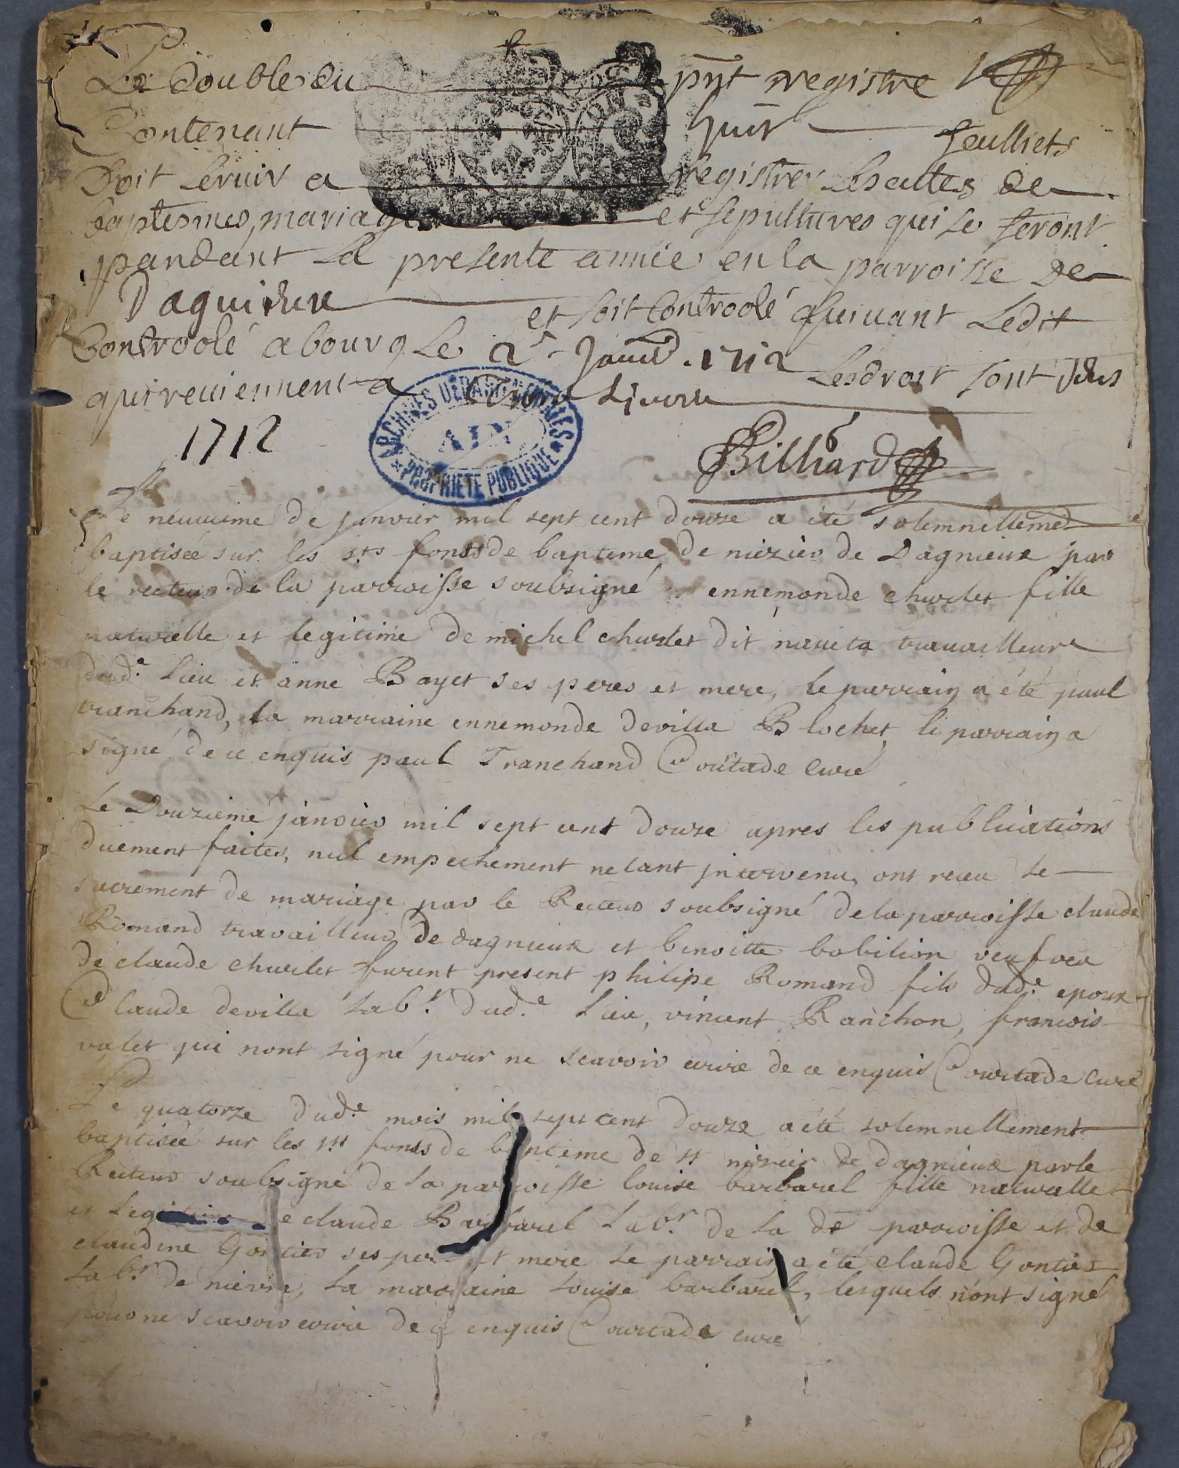 Le double du pnt registre
Contenant huit feulliets
Doit seruir a registrer les actes de
baptesmes, mariages et sepultures qui se feront
pandant la presente année en la parroisse de
Dagnieux et soit Controolé suivant Ledit
Controolé a bourg Le 2e Janvier 1712 les droit sont deus
qui reuiennent a Livre
ARCHIVES DÉPARTEMENTALES
AIN
PROPRIÉTÉ PUBLIQUE
1712
Billhard
Le neuuieme de janvier mil sept cent douze a été solemnellement
baptisée sur les sts fonts de bapteme de nizier de Dagnieux par
le recteur de la parroisse soubsigné ennemonde churlet fille
naturelle et legitime de michel churlet dit naueta trauailleur
dude lieu et anne Bayet ses peres et mere, le parrain a été paul
tranchand, la marraine ennemonde deuilla Blochet, le parrain a
signé de ce enquis paul Tranchand Courtade Curé
Le Douzieme janvier mil sept cent douze apres les publications
duement faites, nul empechement netant jntervenu, ont receu le
sacrement de mariage par le Recteur soubsigné de la parroisse claude
Romand travailleur de dagnieux et benoitte bobilion veufve
de claude churlet furent present philipe Romand fils dude epoux
Claude deville Labr dude Lieu, vincent Ranchon, francois
valet qui nont signé pour ne scavoir ecrire de ce enquis Courtade curé
Le quatorze dude mois mil sept cent douze a été solemnellement
baptisée sur les sts fonts de bapteme de st nizier de dagnieux par le
Recteur soubsigné de la parroisse louise barbarel fille naturelle
et Legitime de claude Barbarel Labr de la de parroisse et de
claudine Gontier ses pere et mere le parrain a été claude Gontier
Labr de nievre, la marraine louise barbarel, lesquels n'ont signé
pour ne scavoir ecrire de ce enquis Courtade curé